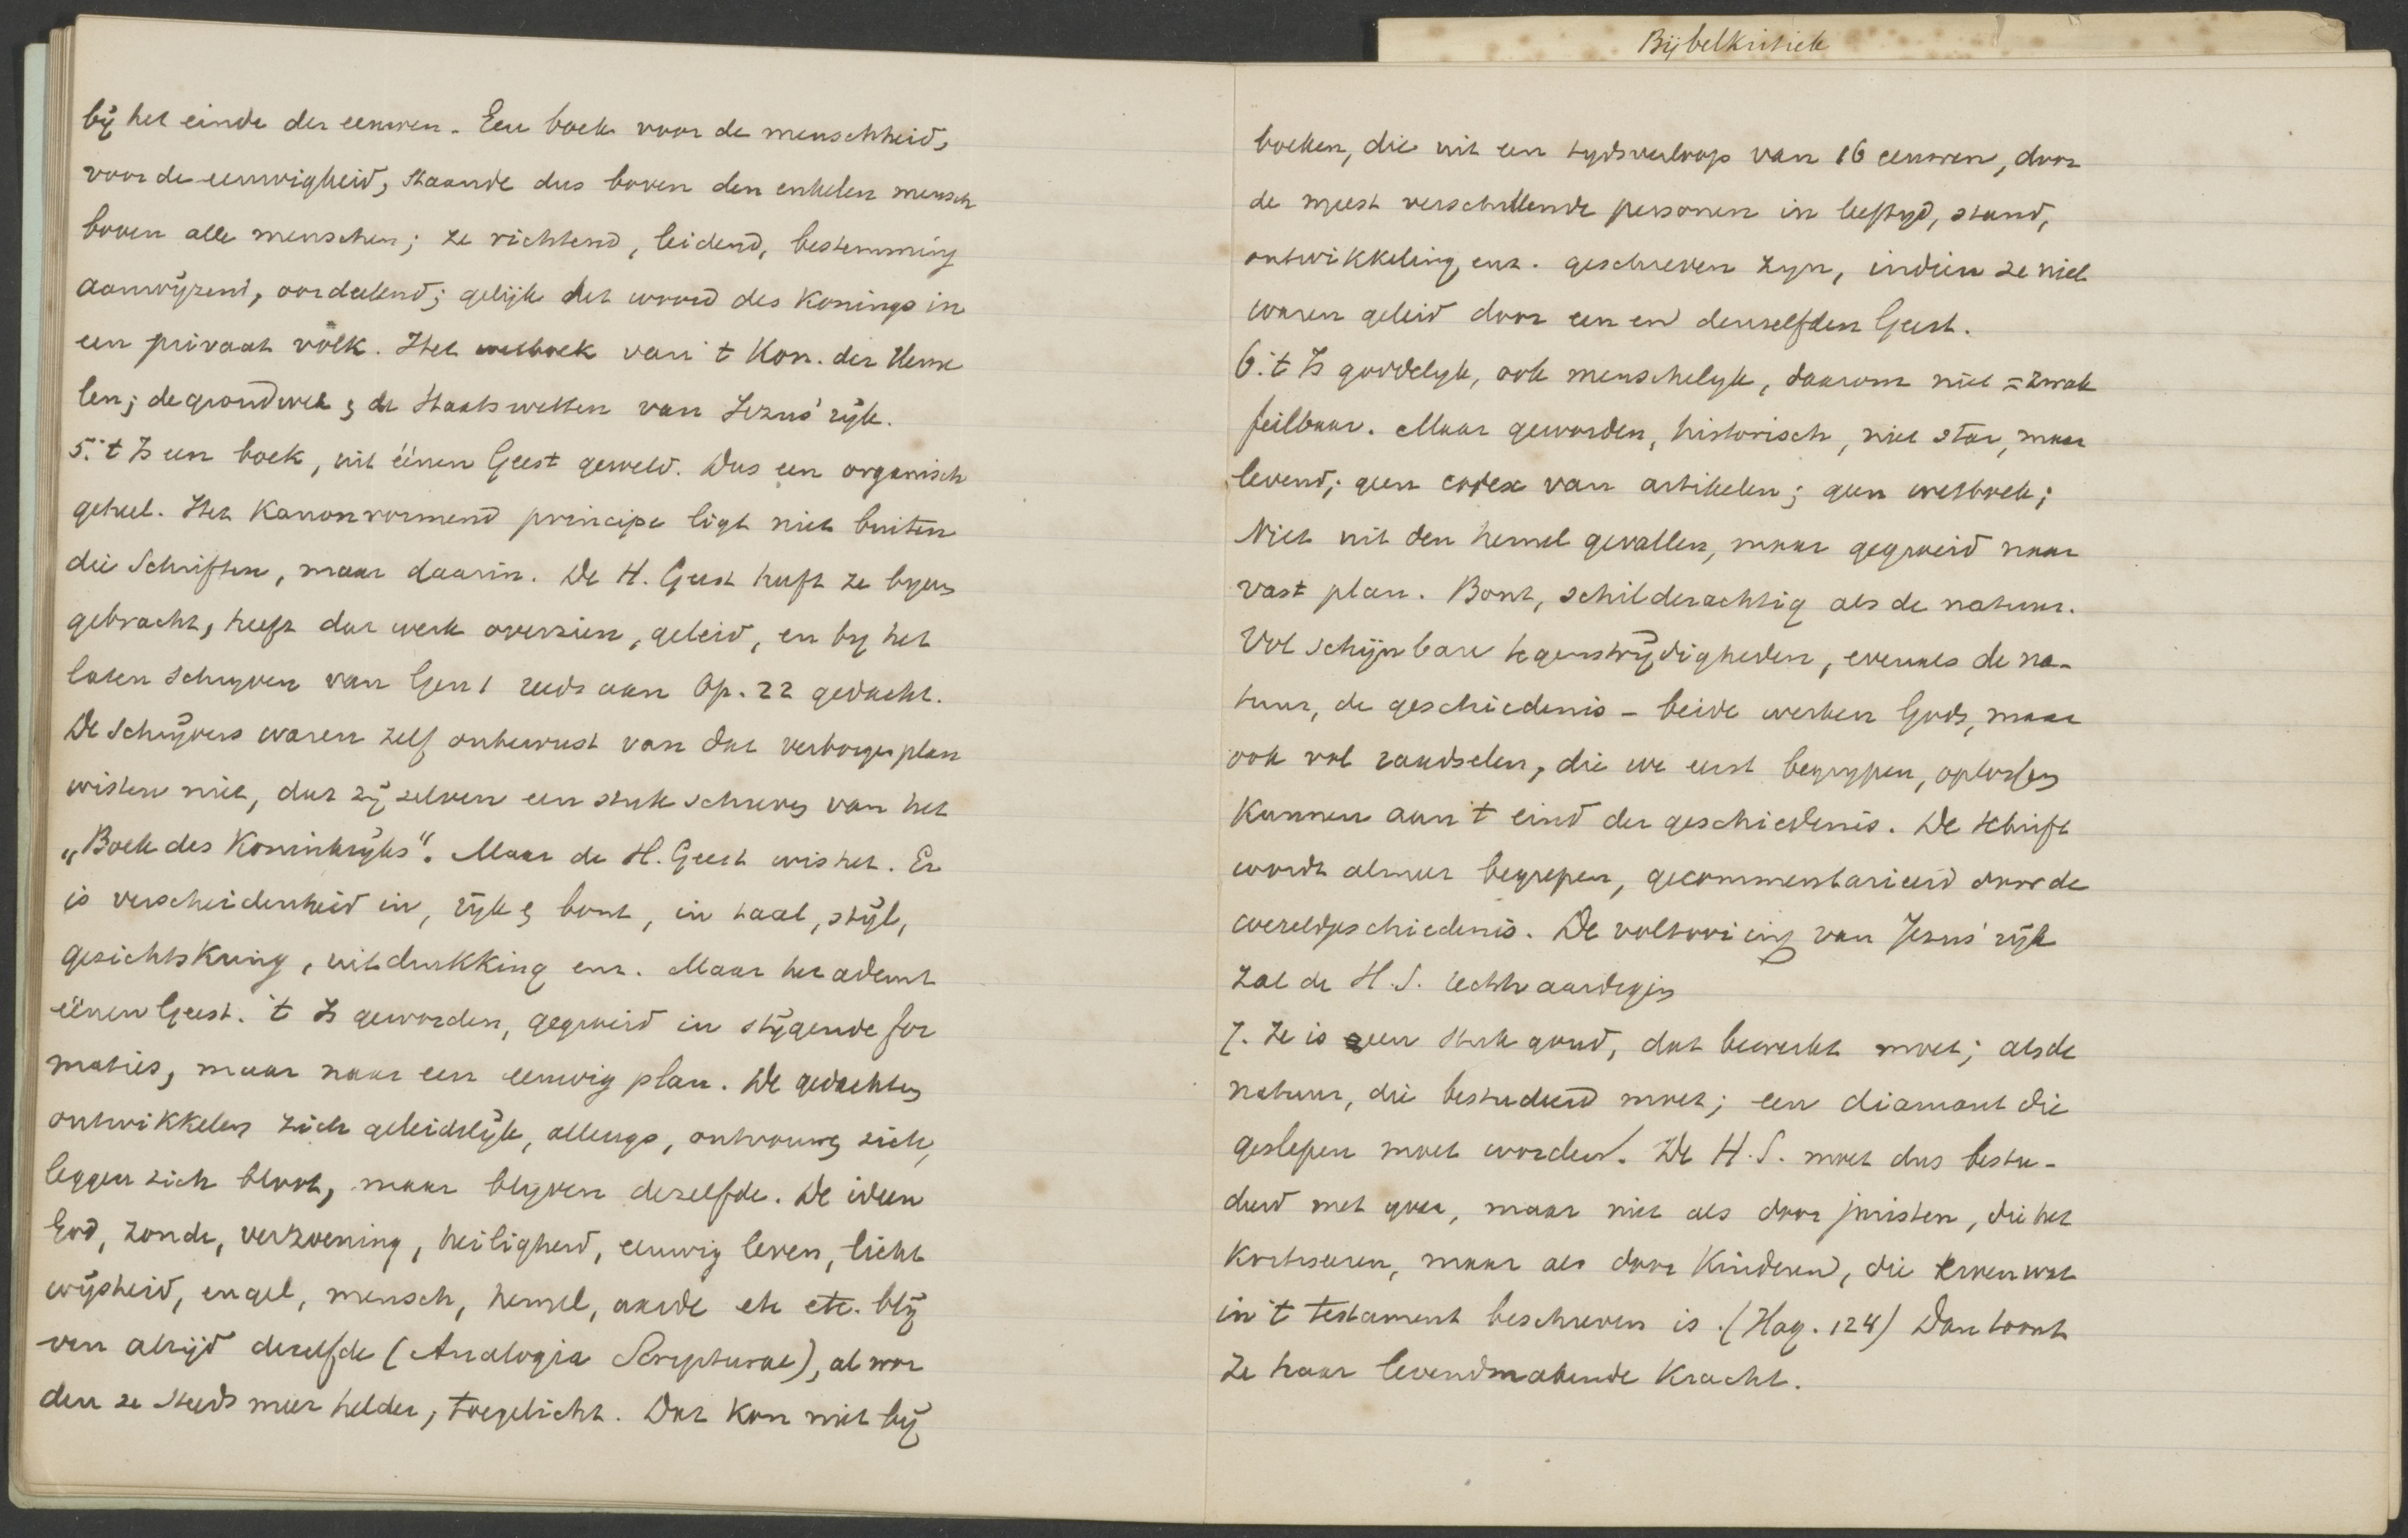 bij het einde der eeuwen. Een boek voor de menschheid,
voor de eeuwigheid, staande dus boven den enkelen mensch
boven alle menschen; ze richtend, leidend, bestemming
aanwijzend, oordeelend; gelijk het woord des Konings in
een privaat volk. Het wetboek van 't Kon. der Heme
len; de grondwet & de Staatswetten van Jezus' rijk.
5. 't Is een boek, uit éénen Geest geweld. Dus een organisch
geheel. Het Kanonvormend principe ligt niet buiten
die Schriften, maar daarin. De H. Geest heeft ze bijeen
gebracht, heeft dat werk overzien, geleid, en by het
laten schryven van Gen 1 reeds aan Op. 22 gedacht.
De Schrijvers waren zelf onbewust van dat verborgen plan
wisten niet, dat zij zelven een stuk schreven van het
„Boek des Koninkrijks". Maar de H. Geest wist het. Er
is verscheidenheid in, rijk & bont, in taal, stijl,
gezichtskring, uitdrukking enz. Maar het ademt
éénen Geest. 't Is geworden, gegroeid in stijgende for
maties, maar naar een eeuwig plan. De gedachten
ontwikkelen zich geleidelijk, allengs, ontvouwen zich,
leggen zich bloot, maar blyven dezelfde. De ideen
God, zonde, verzoening, heiligheid, eeuwig leven, licht
wijsheid, engel, mensch, hemel, aarde etc etc. blij
ven altijd dezelfde (Analogia Scripturae), al wor
den ze steeds meer helder, toegelicht. Dat kon niet bij
Bijbelkritiek
boeken, die uit een tydsverloop van 16 eeuwen, door
de meest verschillende personen in leeftyd, stand,
ontwikkeling, enz. geschreven zyn, indien ze niet
waren geleid door een en denzelfden Geest.
6. 't Is goddelyk, ook menschelyk, daarom niet = zwak
feilbaar. Maar geworden, historisch, niet star, maar
levend; geen codex van artikelen; geen wetboek;
Niet uit den hemel gevallen, maar gegroeid naar
vast plan. Bont, schilderachtig als de natuur.
Vol schijnbare tegenstrijdigheden, evenals de na-
tuur, de geschiedenis - beide werken Gods, maar
ook vol raadselen, die we eerst begrypen, oplossen
kunnen aan 't eind der geschiedenis. De Schrift
wordt almeer begrepen, gecommentarieerd door de
wereldgeschiedenis. De voltooiing van Jezus' rijk
zal de H.S. rechtvaardigen
7. Ze is een stuk goud, dat bewerkt moet; als de
natuur, die bestudeerd moet; een diamant die
geslepen moet worden. De H.S. moet dus bestu-
deerd met , maar niet als door juristen, die het
, maar als door kinderen, die erven wat
in 't testament beschreven is. (Hag. 124) Dan toont
ze haar levendmakende kracht.